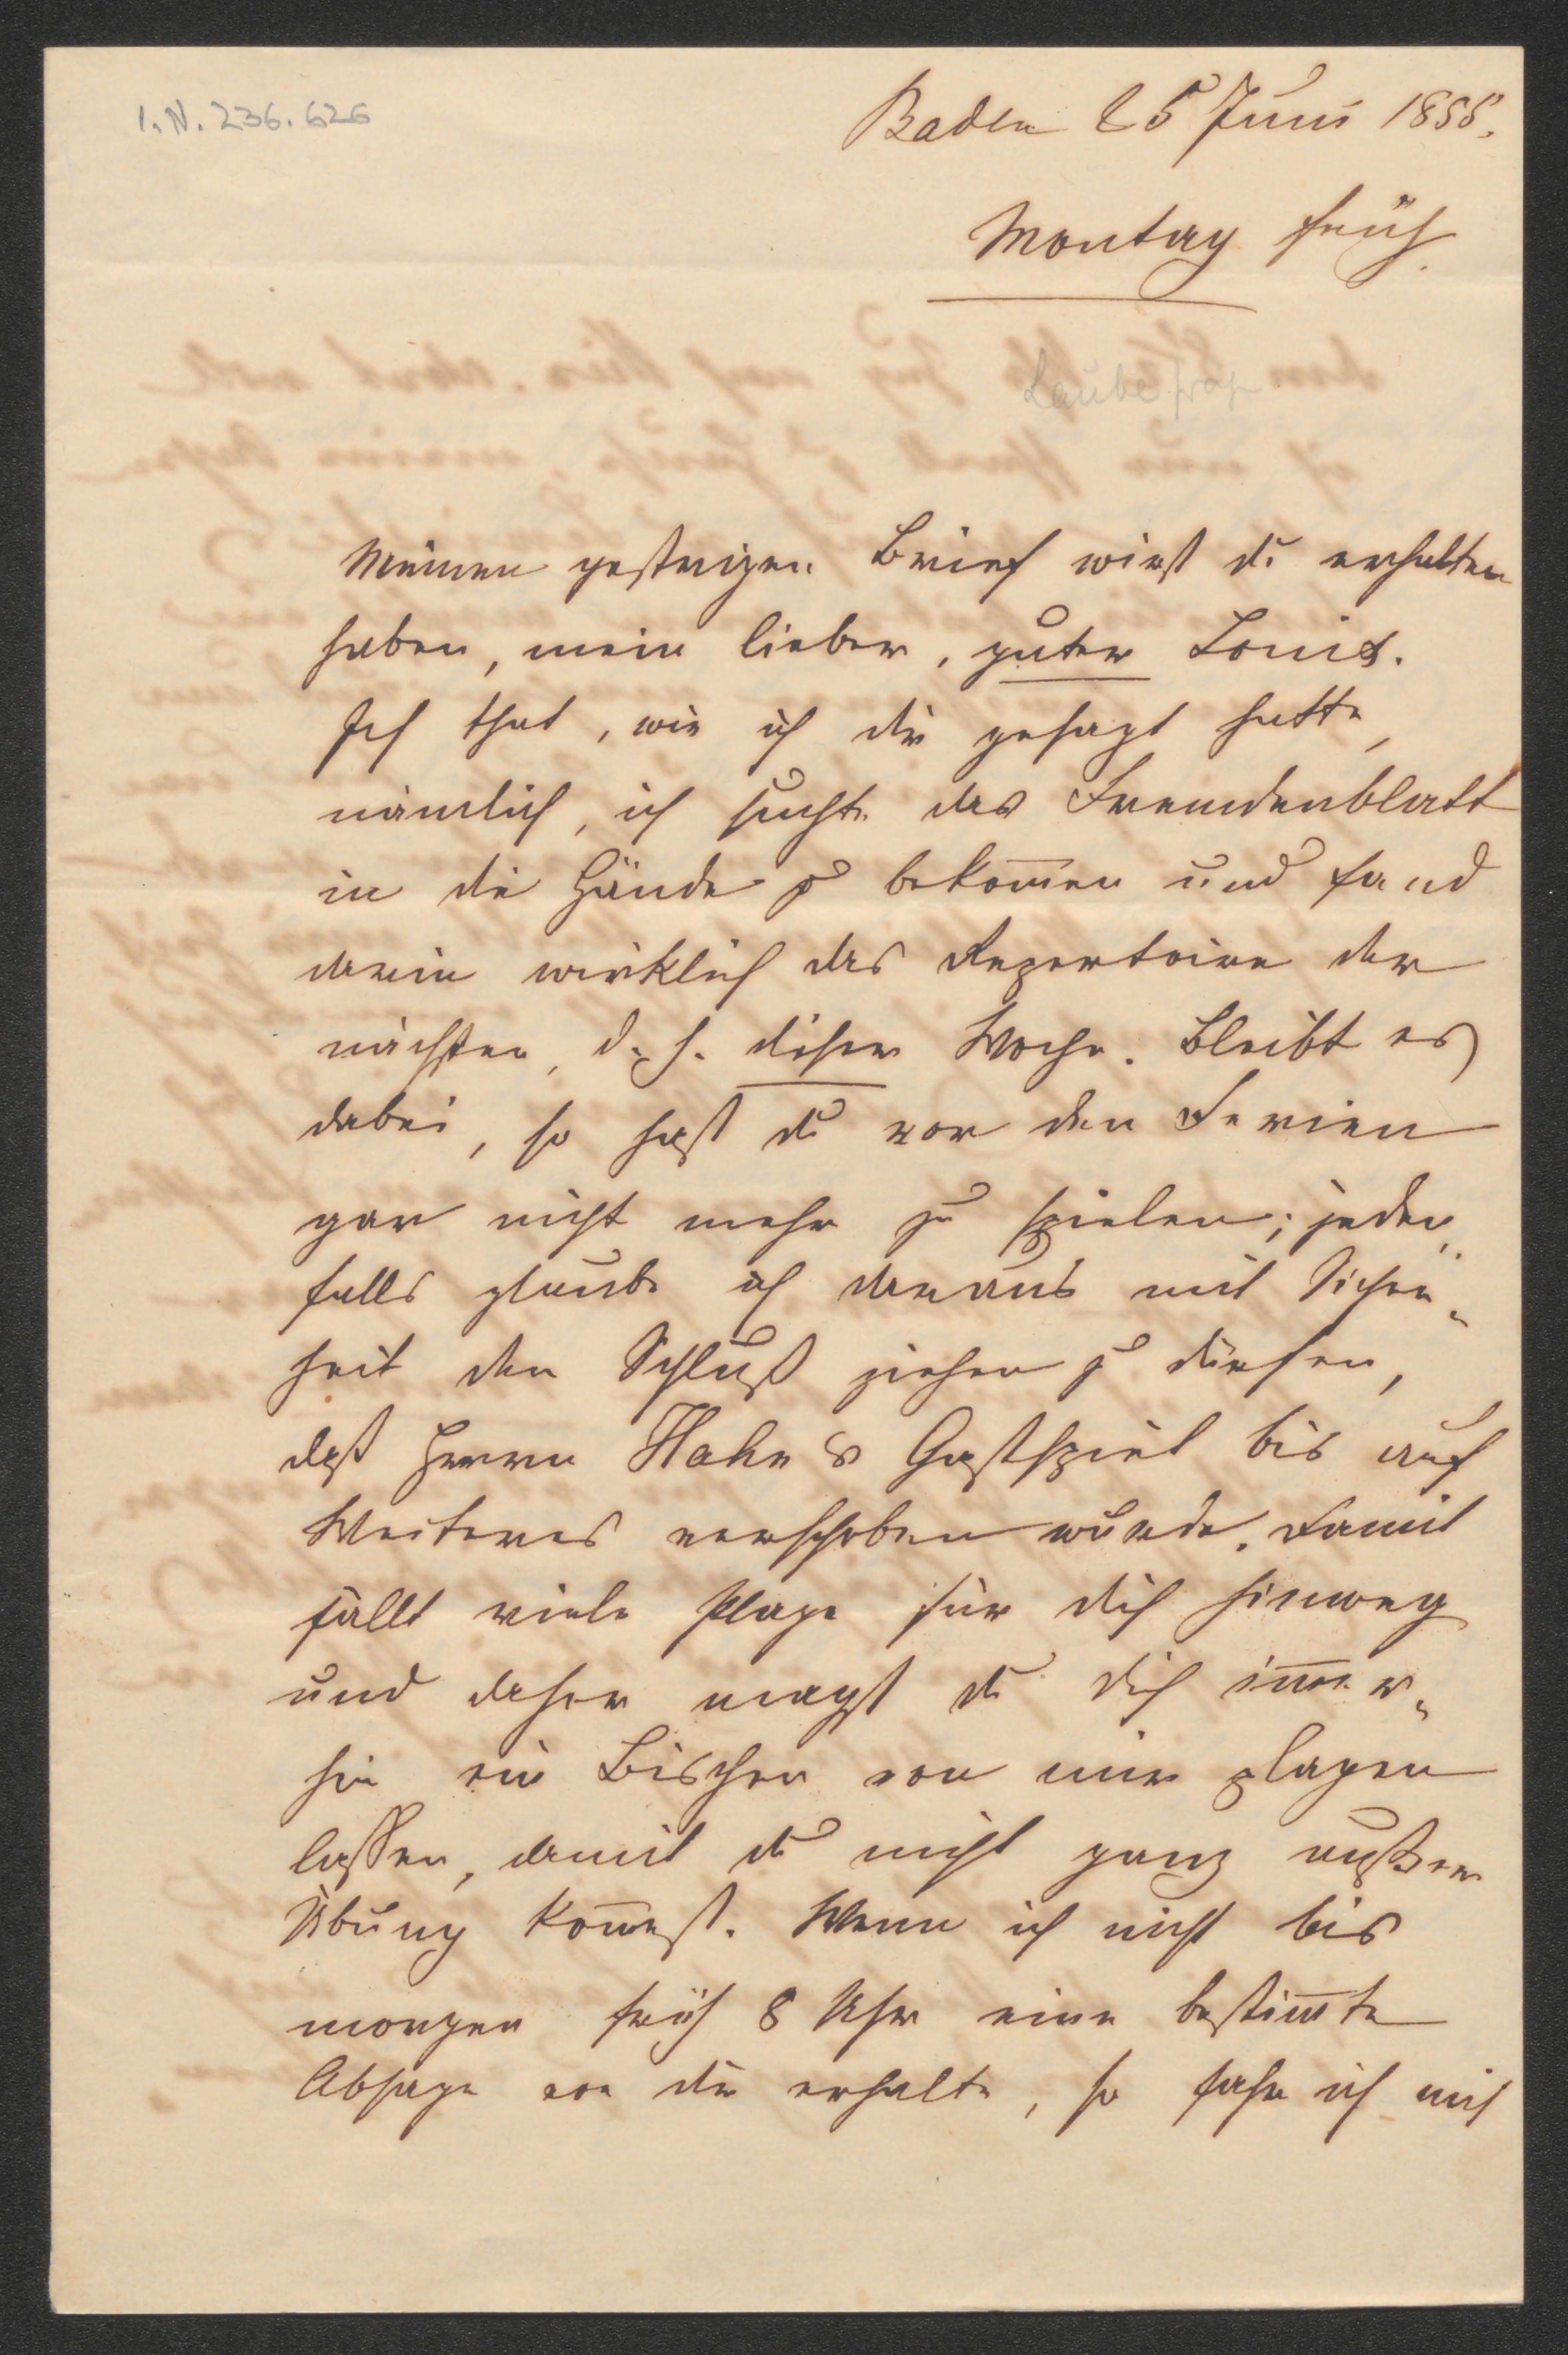 I.N. 236.626
Baden 25 Juni 1855.
Montag früh.
Laube
Meinen gestrigen Brief wirst du erhalten
haben, mein lieber, guter Louis.
Ich that, wie ich dir gesagt hatte,
nämlich, ich suchte das Fremdenblatt
in die Hände zu bekom̅en und fand
darin wirklich das Repertoire der
nächsten, d. h. dieser Woche. Bleibt es
dabei, so hast du vor den Ferien
gar nicht mehr zu spielen; jeden„
falls glaube ich daraus mit Sicher„
heit den Schluß ziehen zu dürfen,
daß Herrn Hahn's Gastspiel bis auf
Weiteres verschoben wurde. Damit
fällt viele Plage für dich hinweg
und daher magst du dich im̅er„
hin ein Bischen von mir plagen
lassen, damit du nicht ganz außer
Übung kom̅est. Wenn ich nicht bis
morgen früh 8 Uhr eine bestim̅te
Absage von dir erhalte, so fahre ich mit